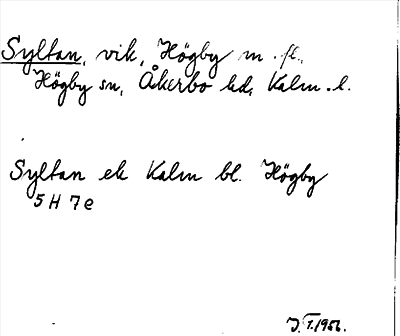 Syltan, vik, Högby m. fl.,
Högby sn, Åkerbo hd, Kalm. l.
Syltan ek Kalm bl. Högby
5 H 7 e